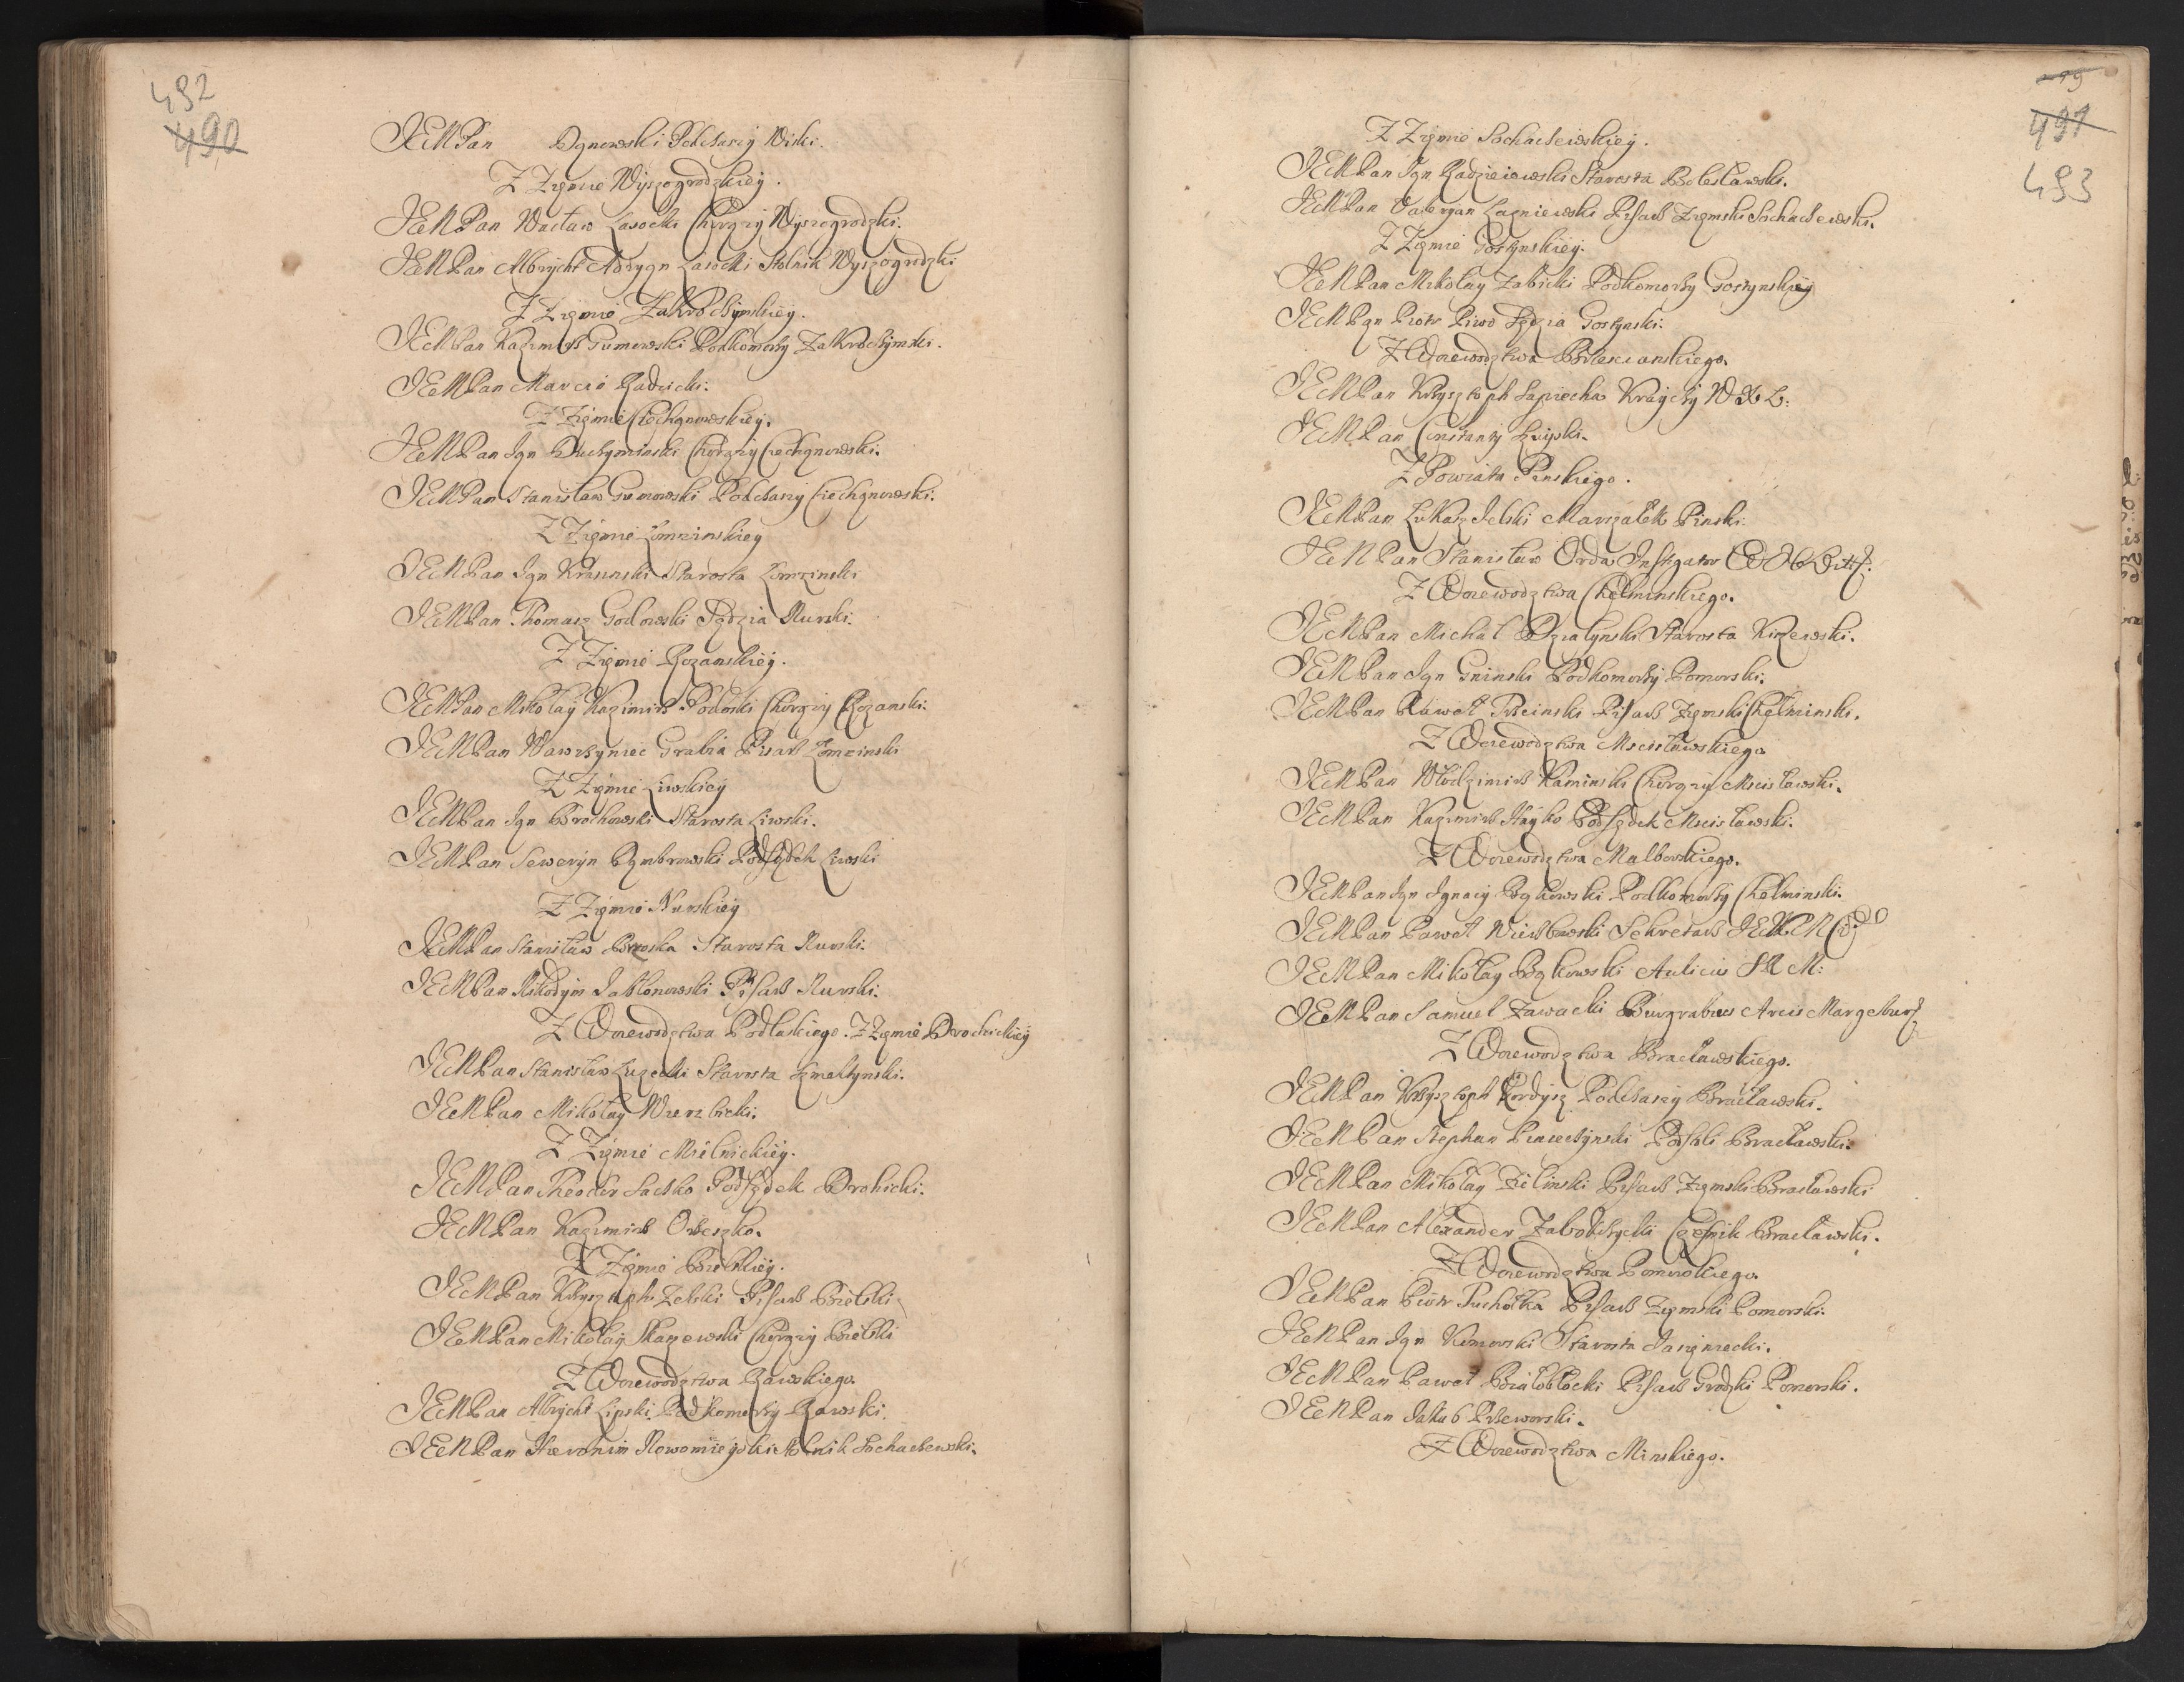 492
490
JEMPan Dąmowski Podczaszy Wiski.
Z Ziemie Wyszogrodzkiey.
JEMPan Wacław Lasocki Chorąży Wyszogrodzki.
JEMPan Albrycht Adryan Lasocki Stolnik Wyszogrodzki
Z Ziemie Zakroczymskiey.
JEMPan Kazimirz Gumowski Podkomorzy Zakroczymski.
JEMPan Marcin Radzicki.
Z Ziemie Ciechanowskiey.
JEMPan Jan Duczyminski Chorąży Ciechanowski.
JEMPan Stanisław Podczaszy Ciechanowski.
Z Ziemie Łomzinskiey
JEMPan Jan Krasinski Starosta Łomzinski
JEMPan Thomasz Godlewski Sędzia Nurski.
Z Ziemie Rozanskiey.
JEMPan Mikołay Kazimirz Podoski Chorąży Rozanski.
JEMPan Wawrzyniec Grabia Pisarz Łomzinski
Z Ziemie Liwskiey
JEMPan Jan Grochowski Starosta Liwski.
JEMPan Seweryn Dąmbrowski Podsędek Liwski
Z Ziemie Nurskiey
JEMPan Stanisław Brzoska Starosta Nurski.
JEMPan Nikodym Jabłonowski Pisarz Nurski.
Z Woiewodztwa Podlaskiego. Z Ziemie Drochickiey
JEMPan Stanisław Łuzecki Starosta
JEMPan Mikołay Wierzbicki.
Z Ziemie Mielnickiey.
JEMPan Theodor Saczko Podsędek Drohicki.
JEMPan Kazimirz Orzeszko.
Z Ziemie Bielskiey.
JEMPan Krzysztoph Zelski Pisarz Bielski
JEMPan Mikołay Skarzewski Chorąży Bielski
Z Woiewodztwa Rawskiego.
JEMPan Albrycht Lipski Podkomorzy Rawski.
JEMPan Hieronim Nowomieyski Stolnik Sochaczewski.
491
493
Z Ziemie Sochaczewskiey.
JEMPan Jan Radzieiewski Starosta Bolesławski.
JEMPan Valeryan Łazniewski Pisarz Ziemski Sochaczewski.
Z Ziemie Gostynskiey.
JEMPan Mikołay Zabicki Podkomorzy Gostynskiey
JEMPan Piotr Piwo Sędzia Gostynski.
Z Woiewodztwa Brzescianskiego.
JEMPan Krzysztoph Sapiecha Krayczy W X L:
JEMPan Constanty
Z Powiatu Pinskiego.
JEMPan Łukasz Jelski Marszałek Pinski.
JEMPan Stanisław Orda Instigator
Z Woiewodztwa Chełminskiego.
JEMPan Michał Działynski Starosta Kiszewski.
JEMPan Jan Gninski Podkomorzy Pomorski.
JEMPan Paweł Trzcinski Pisarz Ziemski Chełminski.
Z Woiewodztwa Mscisławskiego
JEMPan Włodzimirz Kaminski Chorąży Mscisławski.
JEMPan Kazimirz Hayko Podsędek Mscisławski.
Z Woiewodztwa Malborskiego.
JEMPan Jan Ignacy Bąkowski Podkomorzy Chełminski.
JEMPan Paweł Wierzbowski Sekretarz
JEMPan Mikołay Bąkowski Aulicus SR M:
JEMPan Samuel Zawacki Burgrabius Arcis Margeburg
Z Woiewodztwa Bracławskiego.
JEMPan Krzysztoph Kordysz Podczaszy Bracławski.
JEMPan Stephan Piaseczynski Podstoli Bracławski.
JEMPan Mikołay Zielinski Pisarz Ziemski Bracławski
JEMPan Alexander Zabokrzycki Czesnik Bracławski.
Z Woiewodztwa Pomorskiego.
JEMPan Piotr Tuchołka Pisarz Ziemski Pomorski.
JEMPan Jan Kosowski Starosta Jasieniecki.
JEMPan Paweł Białobłocki Pisarz Grodzki Pomorski.
JEMPan Jakub Przeworski.
Z Woiewodztwa Minskiego.